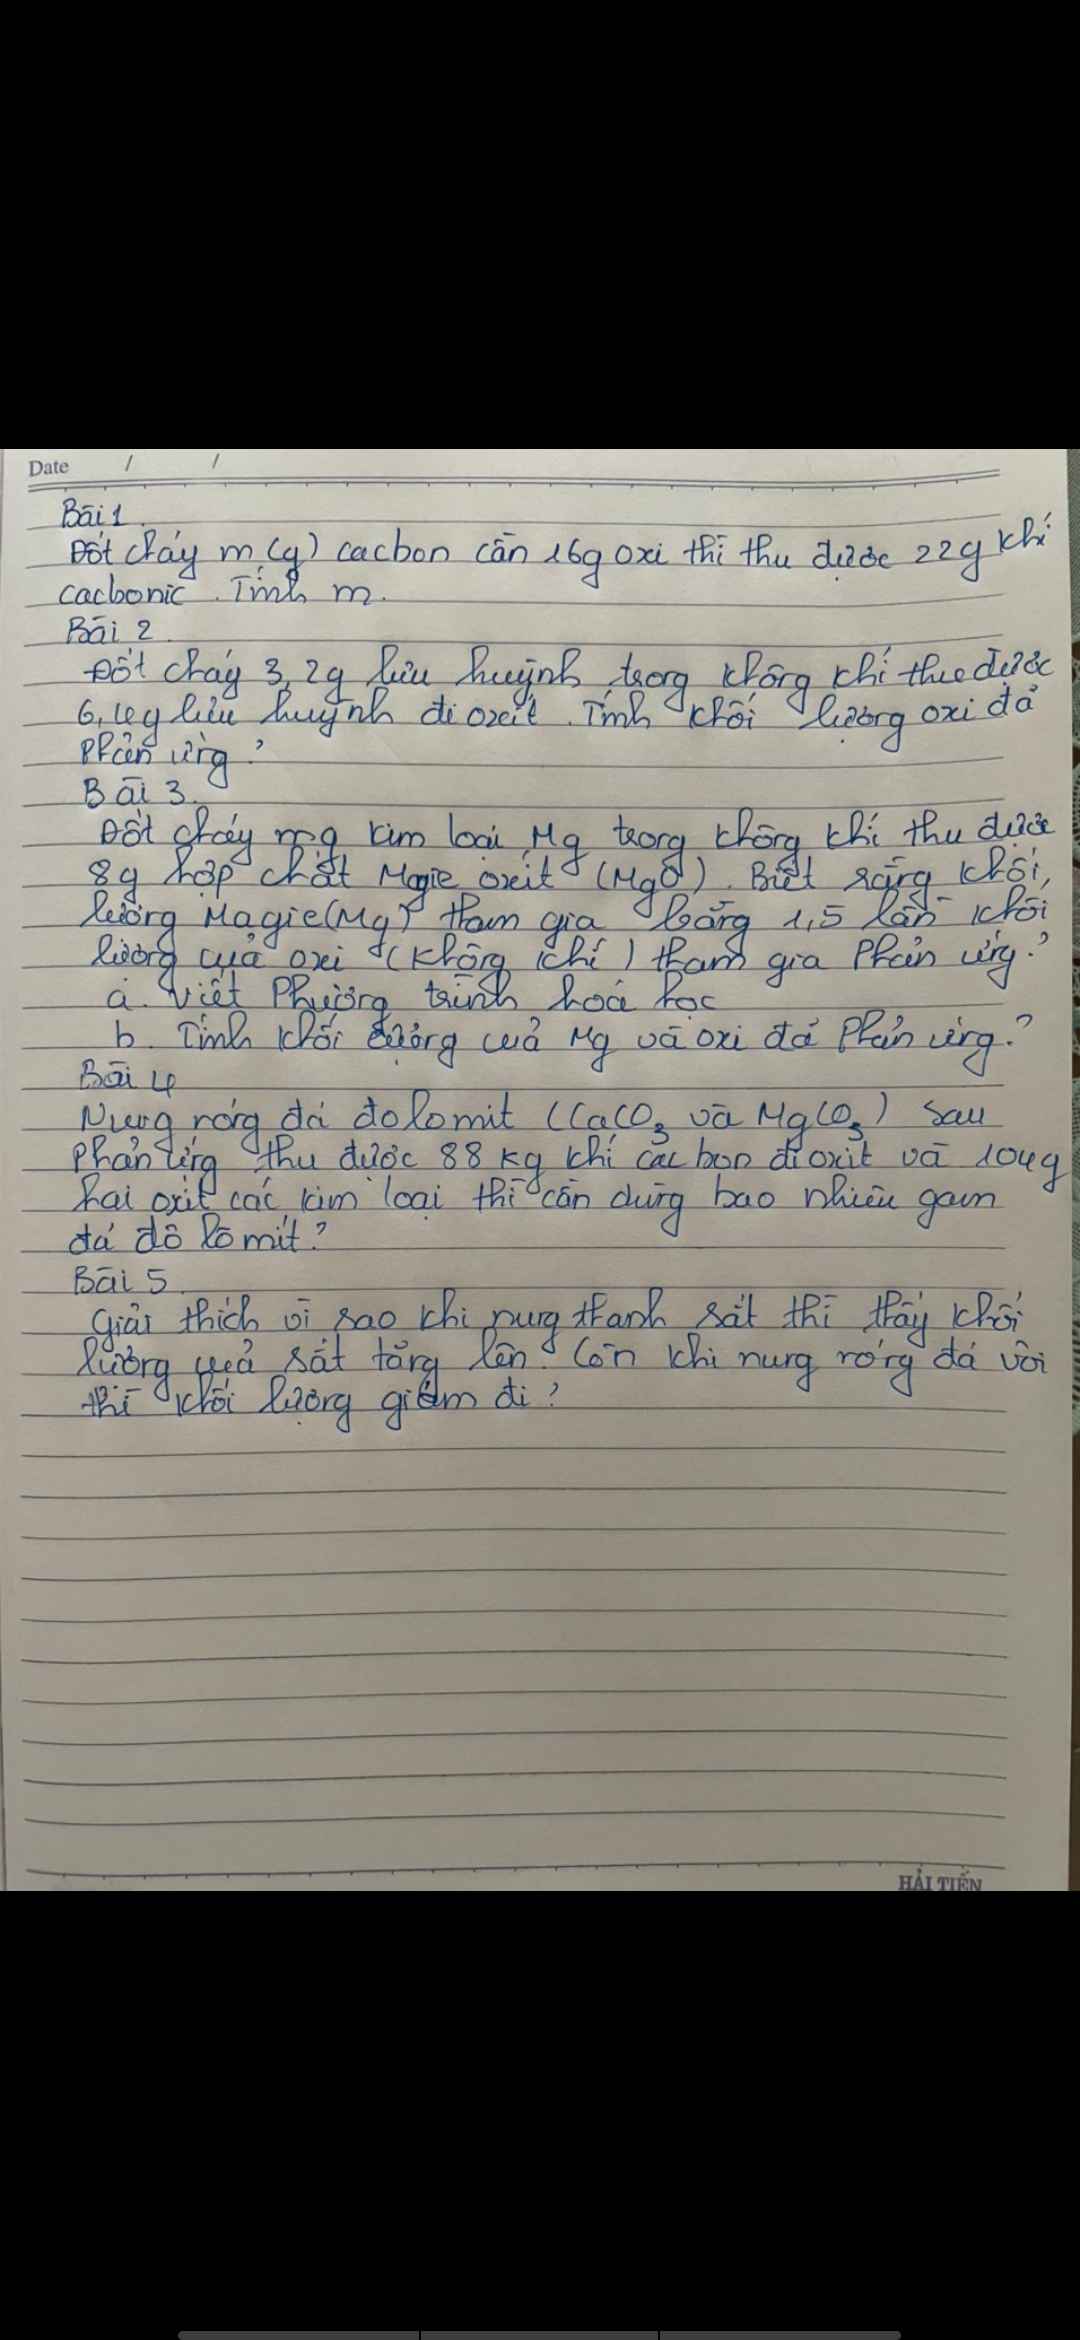 Date / /
Bài 1
Đốt cháy m (g) cacbon cần 16g oxi thì thu được 22g khí
cacbonic. Tính m.
Bài 2
Đốt cháy 3,2g lưu huỳnh trong không khí thu được
6,4g lưu huỳnh đi oxit. Tính khối lượng oxi đã
phản ứng?
Bài 3.
Đốt cháy mg kim loại Mg trong không khí thu được
8g hợp chất Magie oxit (MgO). Biết rằng khối,
lượng Magie(Mg) tham gia bằng 1,5 lần khối
lượng của oxi (không khí) tham gia phản ứng?
a. Viết Phương trình hoá học
b. Tính khối lượng của Mg và oxi đã phản ứng?
Bài 4
Nung nóng đá đolomit (CaCO3 và MgCO3) sau
phản ứng thu được 88 kg khí cac bon đioxit và 104g
hai oxit các kim loại thì cần dùng bao nhiêu gam
đá đô lô mít?
Bài 5
Giải thích vì sao khi nung thanh sắt thì thấy khối
lượng của sắt tăng lên. Còn khi nung nóng đá vôi
thì khối lượng giảm đi?
HẢI TIẾN